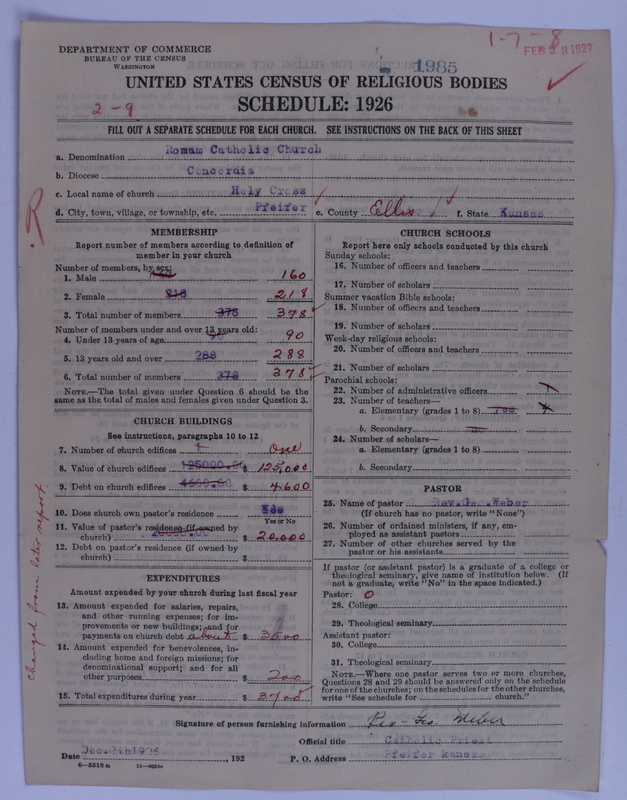 1-7-8
FEB 23 1927
DEPARTMENT OF COMMERCE
BUREAU OF THE CENSUS
WASHINGTON
1985
UNITED STATES CENSUS OF RELIGIOUS BODIES
2-9
SCHEDULE: 1926
FILL OUT A SEPARATE SCHEDULE FOR EACH CHURCH. SEE INSTRUCTIONS ON THE BACK OF THIS SHEET
a. Denomination Romam Catholic Church
b. Diocese Concordia
c. Local name of church Holy Cross
d. City, town, village, or township, etc. Pfeifer e. County Ellis f. State Kansas
R
MEMBERSHIP
Report number of members according to definition of
member in your church
Number of members, by sex:
1. Male 160
2. Female 218 218
3. Total number of members 378 378
Number of members under and over 13 years old:
4. Under 13 years of age 90 90
5. 13 years old and over 288 288
6. Total number of members 378 378
NOTE.—The total given under Question 6 should be the
same as the total of males and females given under Question 3.
CHURCH BUILDINGS
See instructions, paragraphs 10 to 12
7. Number of church edifices 1 One
8. Value of church edifices 125000.00 $ 125,000
9. Debt on church edifices 4600.00 $ 4600
10. Does church own pastor's residence Yes
Yes or No
11. Value of pastor's residence (if owned by
church) 20000.00 $ 20,000
12. Debt on pastor's residence (if owned by
church) $
EXPENDITURES
Amount expended by your church during last fiscal year
13. Amount expended for salaries, repairs,
and other running expenses; for im-
provements or new buildings; and for
payments on church debt about $ 3500
14. Amount expended for benevolences, in-
cluding home and foreign missions; for
denominational support; and for all
other purposes $ 200
15. Total expenditures during year $ 3700
changed from later report.
CHURCH SCHOOLS
Report here only schools conducted by this church
Sunday schools:
16. Number of officers and teachers
17. Number of scholars
Summer vacation Bible schools:
18. Number of officers and teachers
19. Number of scholars
Week-day religious schools:
20. Number of officers and teachers
21. Number of scholars
Parochial schools:
22. Number of administrative officers
23. Number of teachers—
a. Elementary (grades 1 to 8)
b. Secondary
24. Number of scholars—
a. Elementary (grades 1 to 8)
b. Secondary
PASTOR
25. Name of pastor Rev. Geo. Weber
(If church has no pastor, write "None")
26. Number of ordained ministers, if any, em-
ployed as assistant pastors
27. Number of other churches served by the
pastor or his assistants
If pastor (or assistant pastor) is a graduate of a college or
theological seminary, give name of institution below. (If
not a graduate, write "No" in the space indicated.)
Pastor: 0
28. College
29. Theological seminary
Assistant pastor:
30. College
31. Theological seminary
NOTE.—Where one pastor serves two or more churches,
Questions 28 and 29 should be answered only on the schedule
for one of the churches; on the schedules for the other churches,
write "See schedule for church."
Signature of person furnishing information Rev. Geo. Weber
Official title Catholic Priest
Date Dec. 1926, 192 P. O. Address Pfeifer Kansas
8—5518a 11—9054a